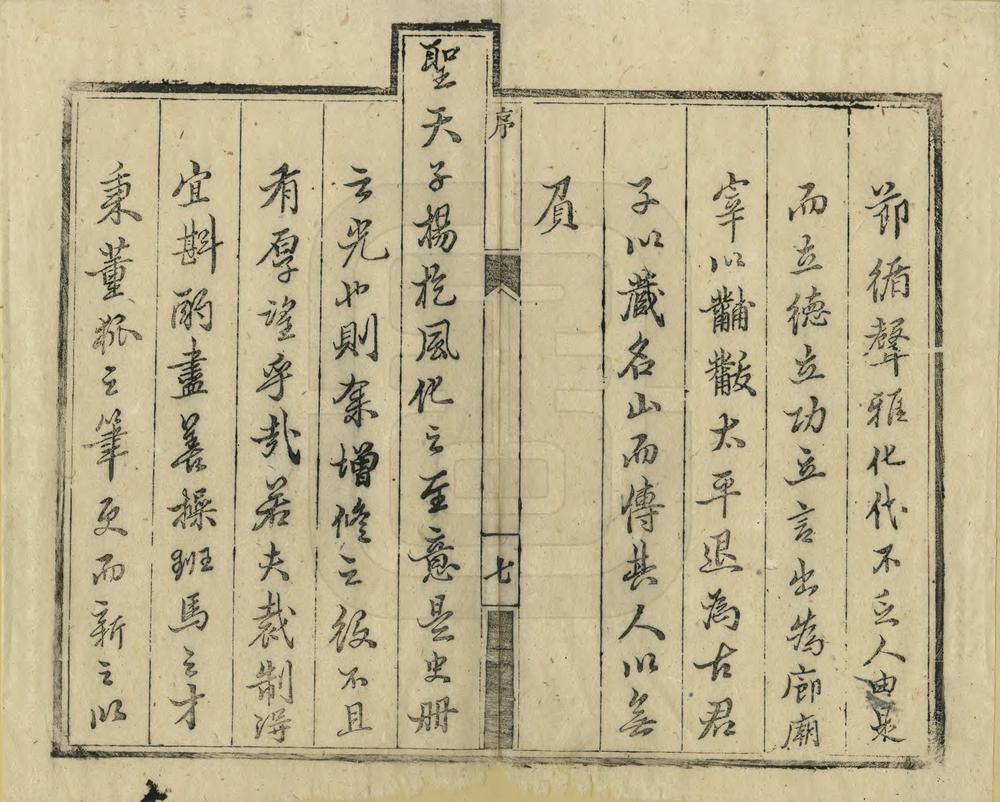 節循聲雅化代不乏人由是
而立德立功立言出為廊廟
宰以黼黻太平退為古君
子以藏名山而傳其人以無
負
序
七
聖天子楊扢風化之至意是史冊
云光也則奈增修之役不且
有厚望乎哉若夫裁制得
宜斟酌盡善操班馬之才
秉董狐之筆更而新之以